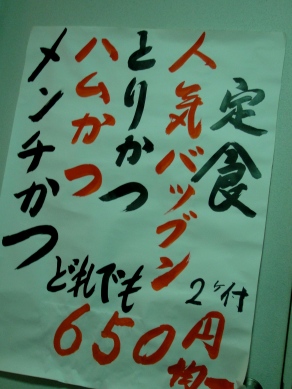 定食
人気バツグン
とりかつ
ハムかつ
メンチかつ
どれでも
2ヶ付
650円
均一